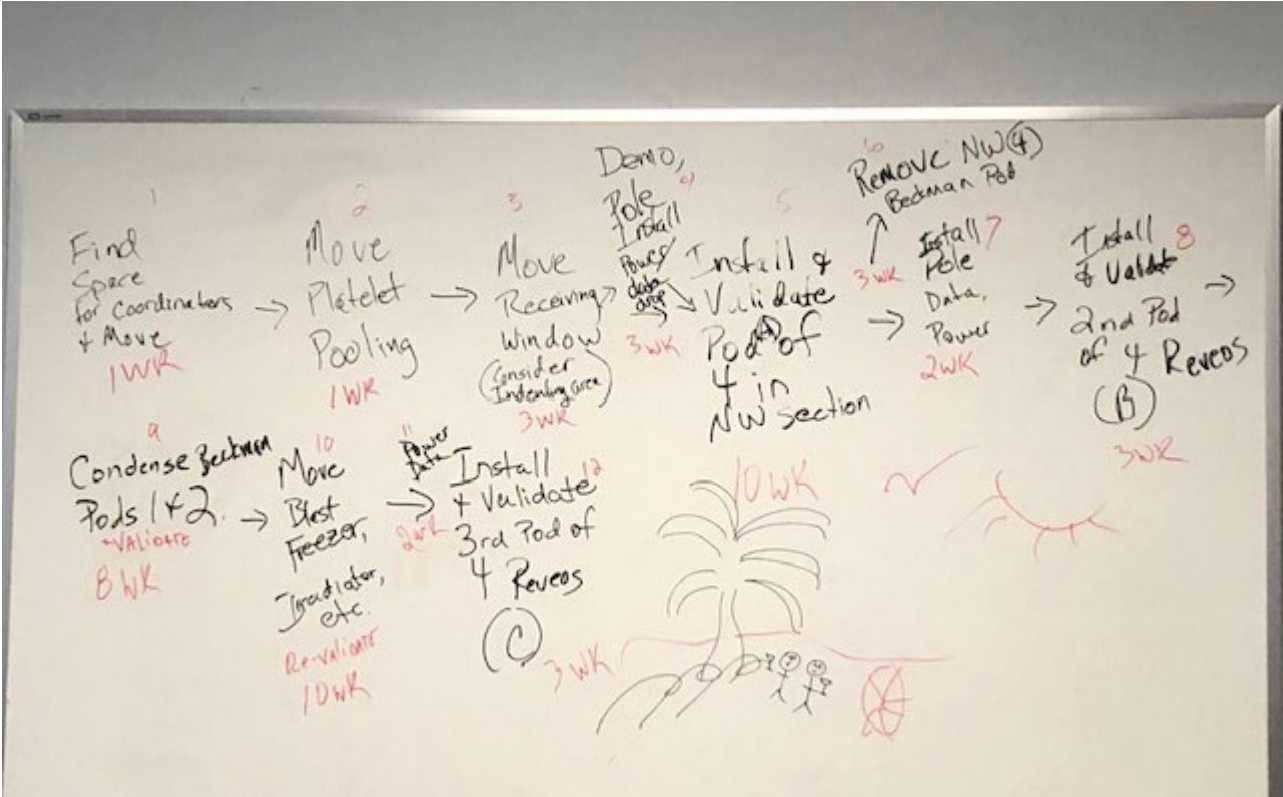 1
Find
Space
for Coordinators
& Move
1WK
2
Move
Platelet
Pooling
1WK
3
Move
Receiving
Window
(Consider
Indenting area)
3WK
Demo,
4
Pole
Install
Power/
data
area
3WK
5
Install &
Validate
Pod (A) of
4 in
NW Section
10WK
6
Remove NW (4)
Beckman Pod
3WK
Install 7
Pole
Data,
Power
2WK
Install 8
& Validate
2nd Pod
of 4 Reveos
(B)
3WK
9
Condense Beckman
Pods 1 & 2.
VALIDATE
8WK
10
Move
Blast
Freezer,
Irradiator,
etc.
Re-validate
10WK
11
Power
Data
2WK
12
Install
& Validate
3rd Pod of
4 Reveos
(C)
3WK